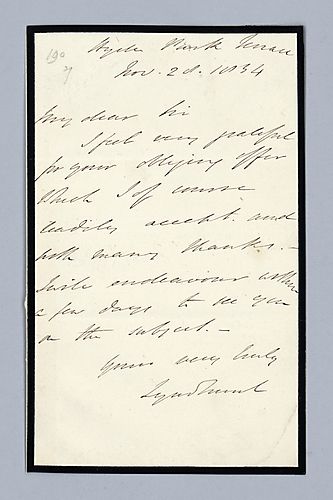 Hyde Park Terrace
Nov. 28. 1854
190
My dear Sir
I feel very grateful
for your obliging offer
which I of course
readily accept. and
with many thanks. –
I will endeavour within
a few days to see you
on the subject. –
Yours very truly